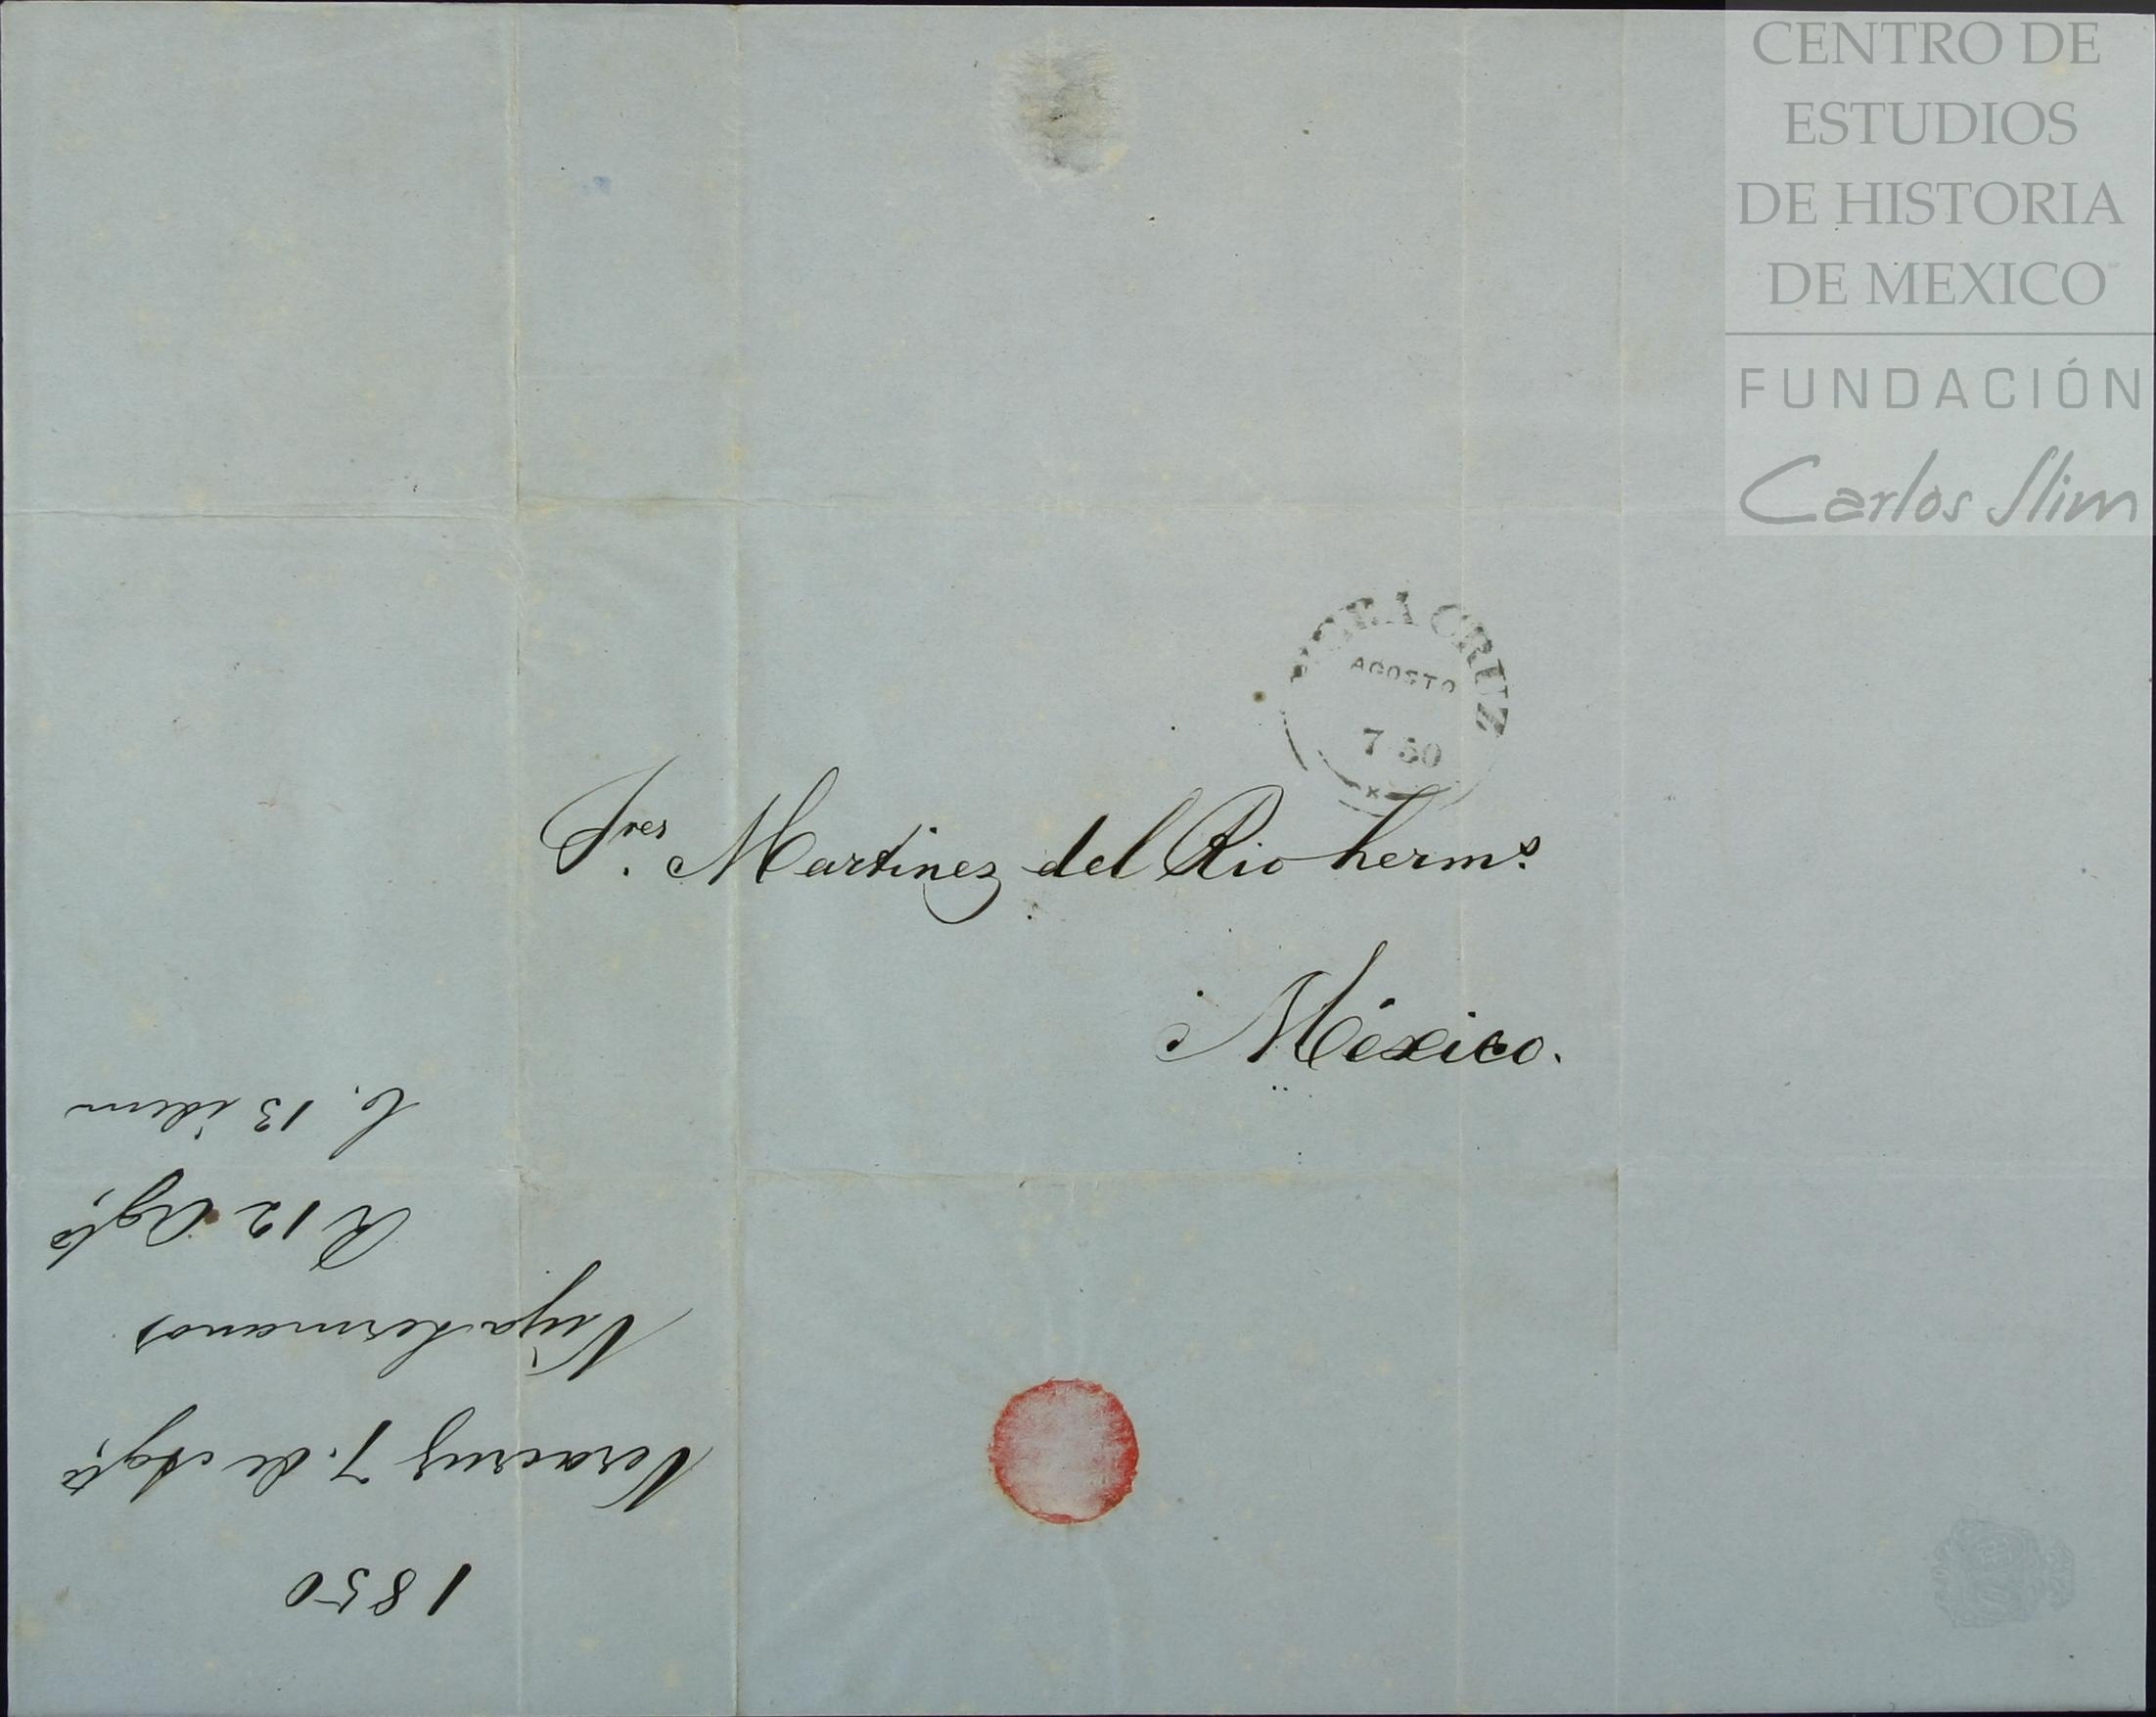 CENTRO DE
ESTUDIOS
DE HISTORIA
DE MEXICO
FUNDACIÓN
Carlos Slim
VERA CRUZ
AGOSTO
7 50
Sres. Martinez del Rio herms.
México.
1850
Veracruz 7. de Agto.
Viya hermanos
R 12 Agto.
C. 13 idem